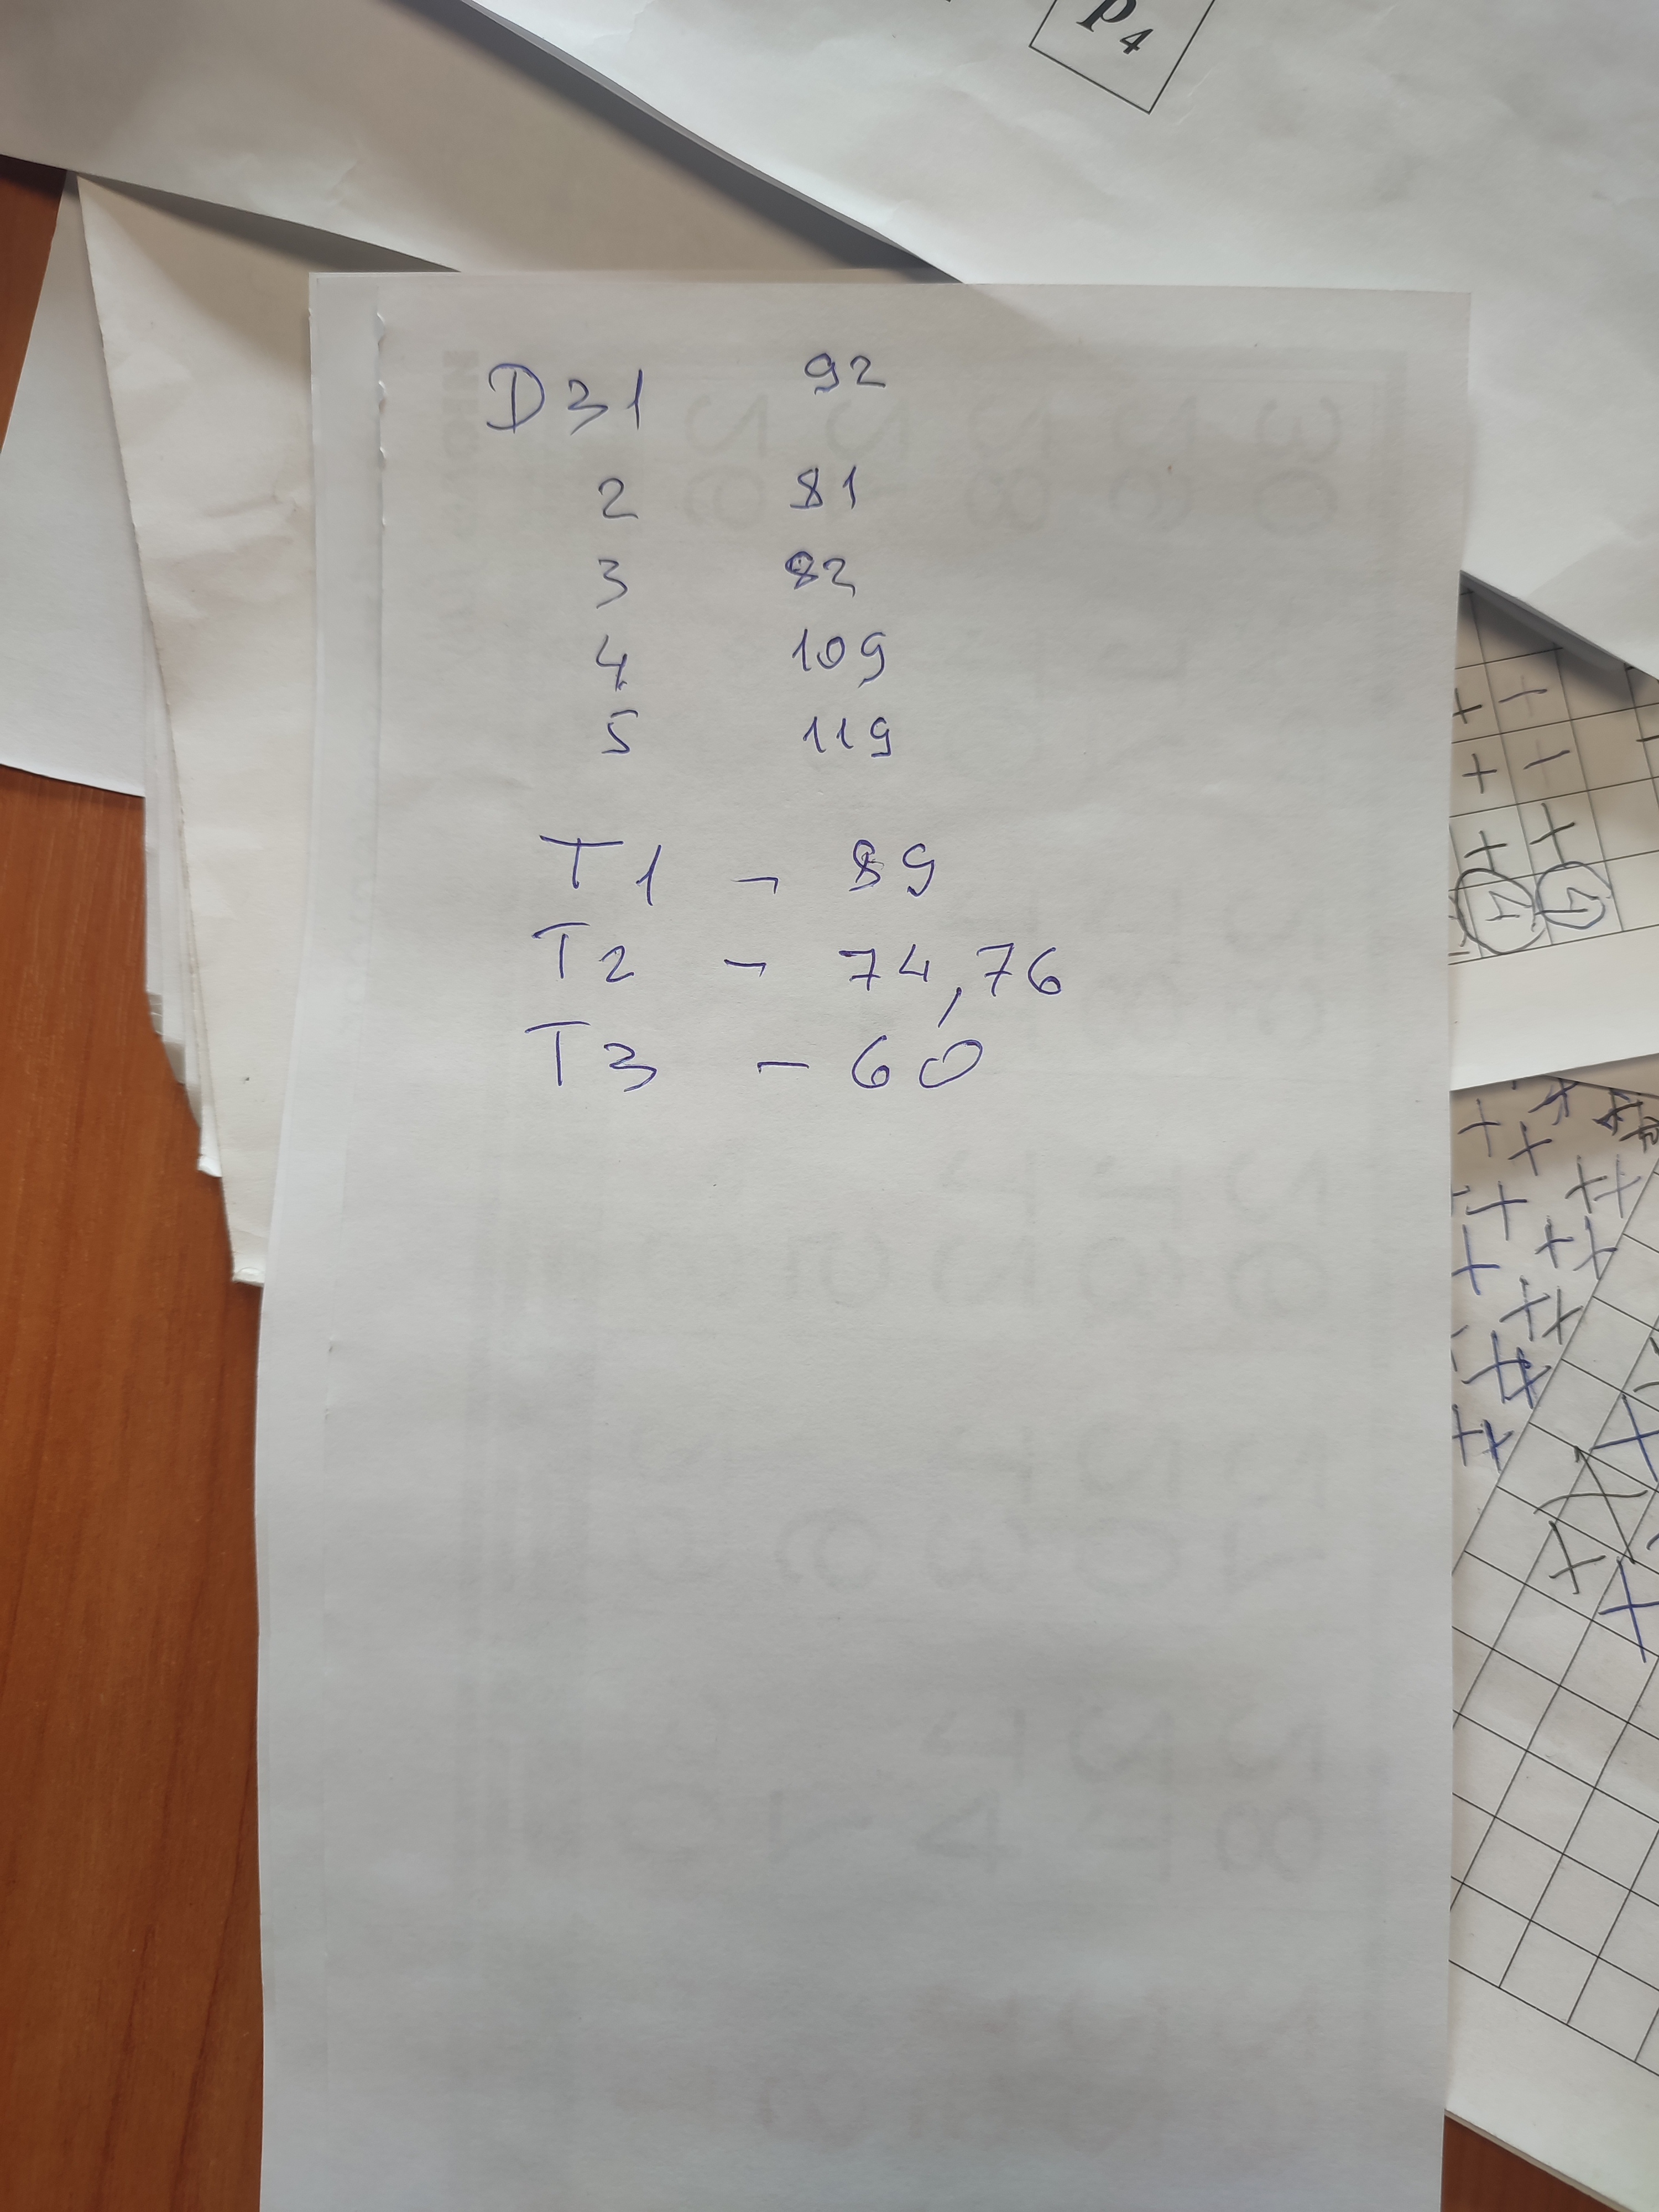 p4
D31 92
2 81
3 82
4 109
5 119
T1 - 89
T2 - 74,76
T3 - 60